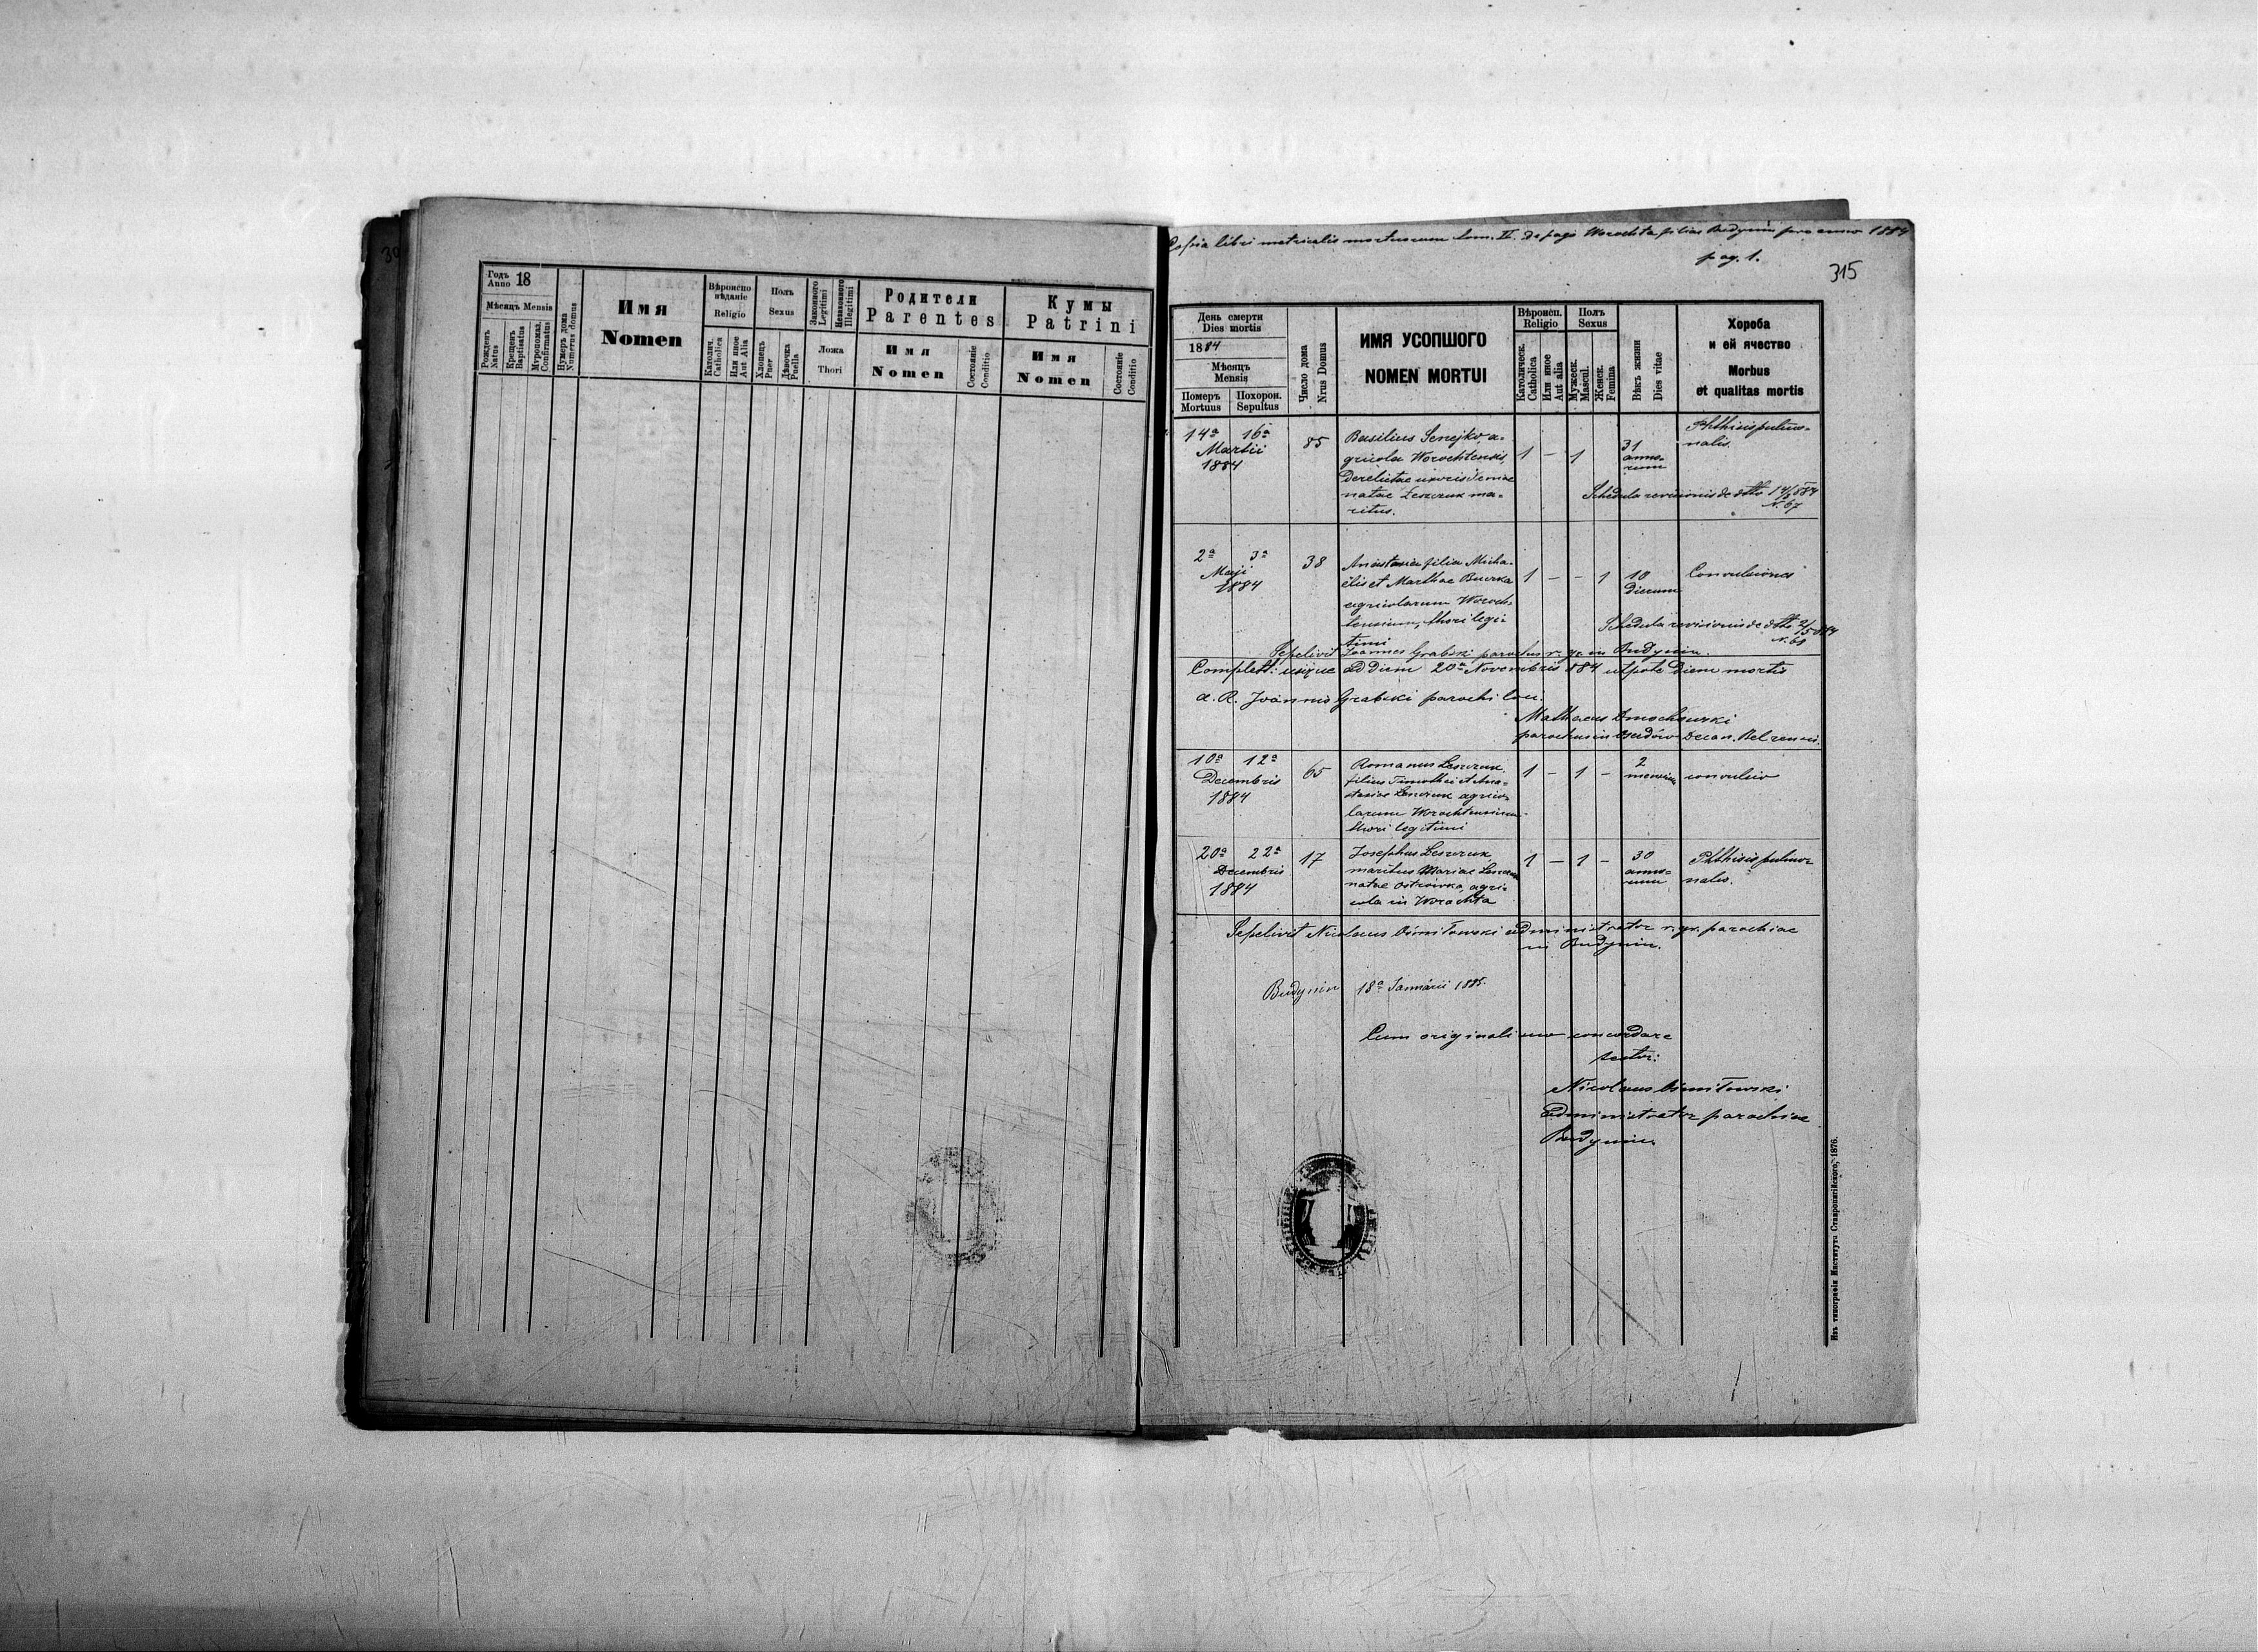 30
Годъ Anno 18
Мѣсяцъ Mensis
Рожденъ Natus
Крещенъ Baptisatus
Муропомаз. Confirmatus
Нумеръ дома Numerus domus
Имя
Nomen
Вѣроиспо
вѣданіе
Religio
Католич. Catholica
Или иное Aut Alia
Полъ
Sexus
Хлопецъ Puer
Дѣвочка Puella
Законного Legitimi
Незаконного Illegitimi
Ложа
Thori
Родители
Parentes
Имя
Nomen
Состояніе Conditio
Кумы
Patrini
Имя
Nomen
Состояніе Conditio
Copia libri metricalis mortuorum tom. II. de pago Worochta filiae Budynin pro anno 1884
pag. 1.
315
День смерти
Dies mortis
1884
Мѣсяцъ
Mensis
Померъ Mortuus
Похорон. Sepultus
Число дома Nrus Domus
ИМЯ УСОПШОГО
NOMEN MORTUI
Вѣроисп.
Religio
Католическ. Catholica
Или иное Aut alia
Полъ
Sexus
Мужеск. Mascul.
Женск. Femina
Вѣкъ жизни Dies vitae
Хороба
и ей ячество
Morbus
et qualitas mortis
14ª 16ª 85 Basilius Senejko, a-
Martii gricola Worochtensis, 1 – 1 31 Phthisis pulmo-
1884 derelictae uxoris Xeniae anno- nalis.
natae Leszczuk ma- rum
ritus. Schedula revisionis de dtto 14/3 884
N. 67
2ª 3ª 38 Anastasia filia Micha-
Maji elis et Marthae Burka 1 – – 1 10 Convulsiones
1884 agricolarum Woroch- dierum
tensium, thori legi-
timi Schedula revisionis de dtto 2/5 884
N. 68
Sepelivit Joannes Grabski parochus r. gr. in Budynin.
Complett: usque ad diem 20ª Novembris 884 utpote diem mortis
a. R. Joannis Grabski parochi loci.
Mathaeus Dmochowski
parochus in decan. Belzensis.
10ª 12ª 65 Romanus Leszczuk, 1 – 1 – 2 convulsio
Decembris filius Timothei et Ana- mensium
1884 stasiae Leszczuk agrico-
larum Worochtensium
thori legitimi
20ª 22ª 17 Josephus Leszczuk 1 – 1 – 30 Phthisis pulmo-
Decembris maritus Mariae Leszczuk anno- nalis.
1884 natae Ostrowka, agri- rum
cola in Worochta
Sepelivit Nicolaus Ośmiłowski administrator r. gr. parochiae
in Budynin.
Budynin 18ª Januarii 1885.
Cum originali uno concordare
testor:
Nicolaus Ośmiłowski
administrator parochiae
Budynin.
Изъ типографіи Института Ставропигійского, 1876.